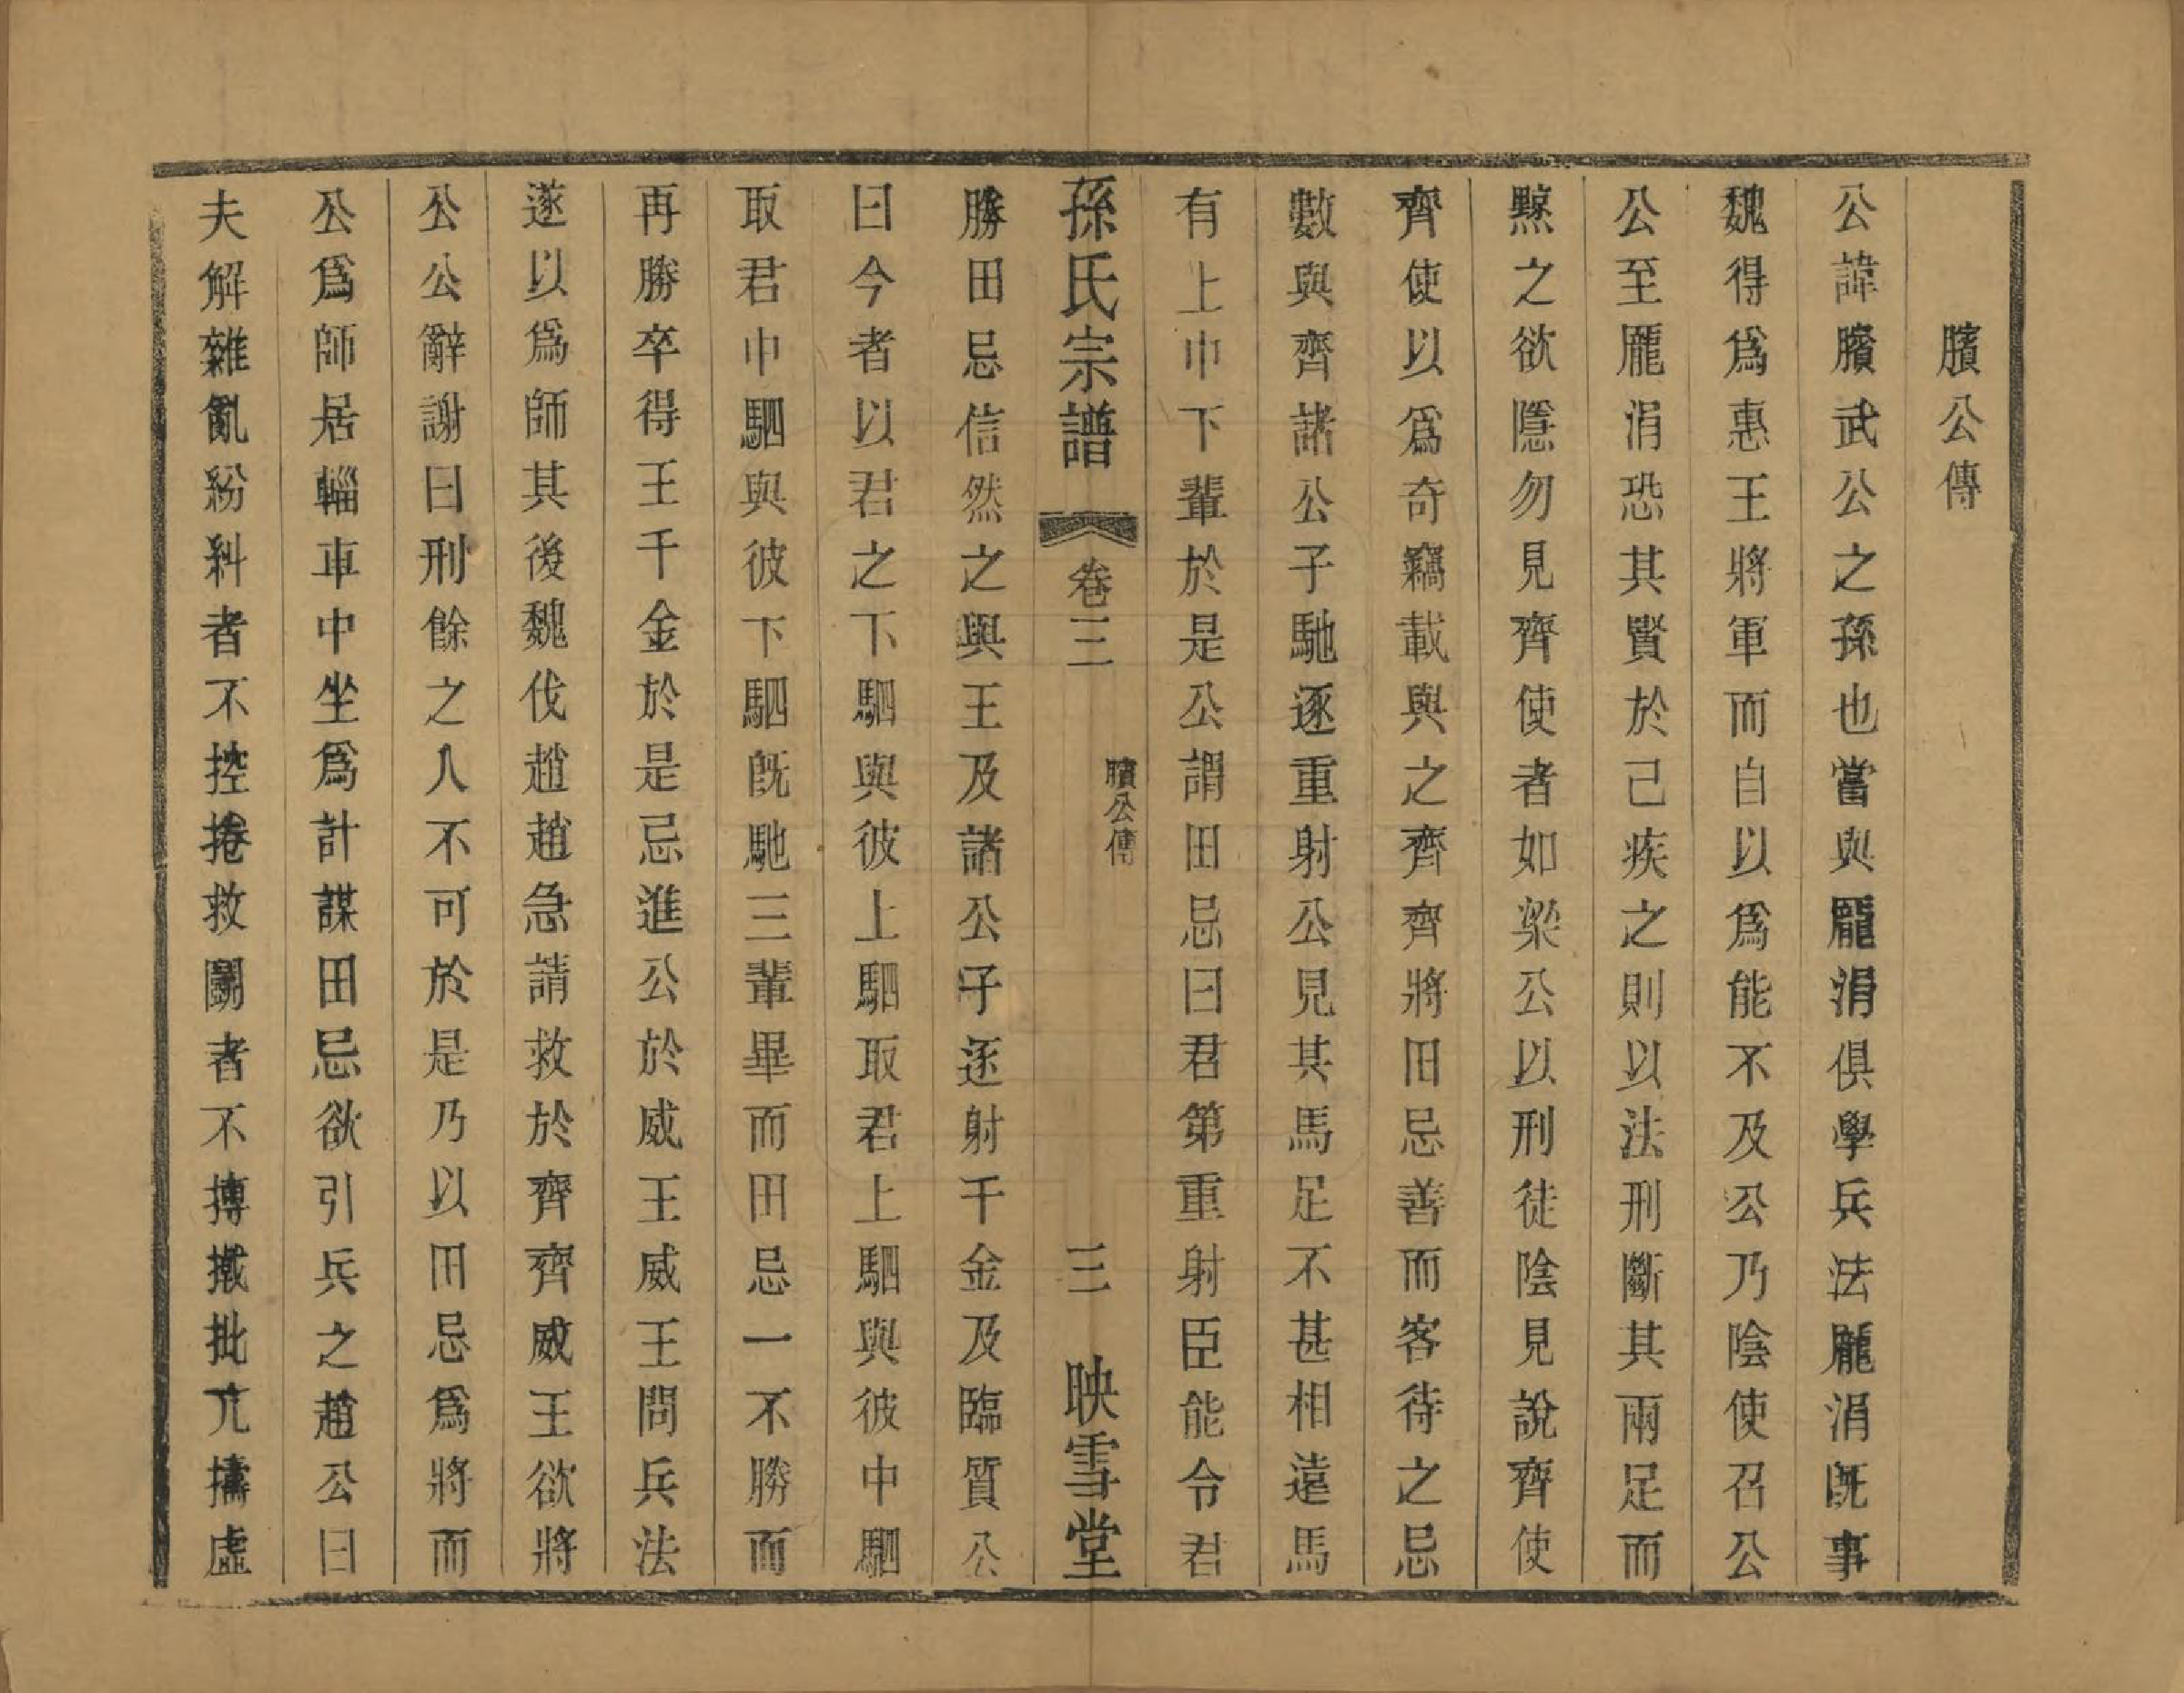 臏公傳
公諱臏武公之孫也當與龐涓俱學兵法龐涓旣事
魏得爲惠王將軍而自以爲能不及公乃陰使召公
公至龐涓恐其賢於己疾之則以法刑斷其兩足而
黥之欲隱勿見齊使者如梁公以刑徒陰見說齊使
齊使以爲奇竊載與之齊齊將田忌善而客待之忌
數與齊諸公子馳逐重射公見其馬足不甚相遠馬
有上中下輩於是公謂田忌曰君第重射臣能令君
孫氏宗譜 卷三 臏公傳 三 映雪堂
勝田忌信然之與王及諸公子逐射千金及臨質公
曰今者以君之下駟與彼上駟取君上駟與彼中駟
取君中駟與彼下駟旣馳三輩畢而田忌一不勝而
再勝卒得王千金於是忌進公於威王威王問兵法
遂以爲師其後魏伐趙趙急請救於齊齊威王欲將
公公辭謝曰刑餘之人不可於是乃以田忌爲將而
公爲師居輜車中坐爲計謀田忌欲引兵之趙公曰
夫解雜亂紛糾者不控捲救鬭者不搏撠批亢擣虛